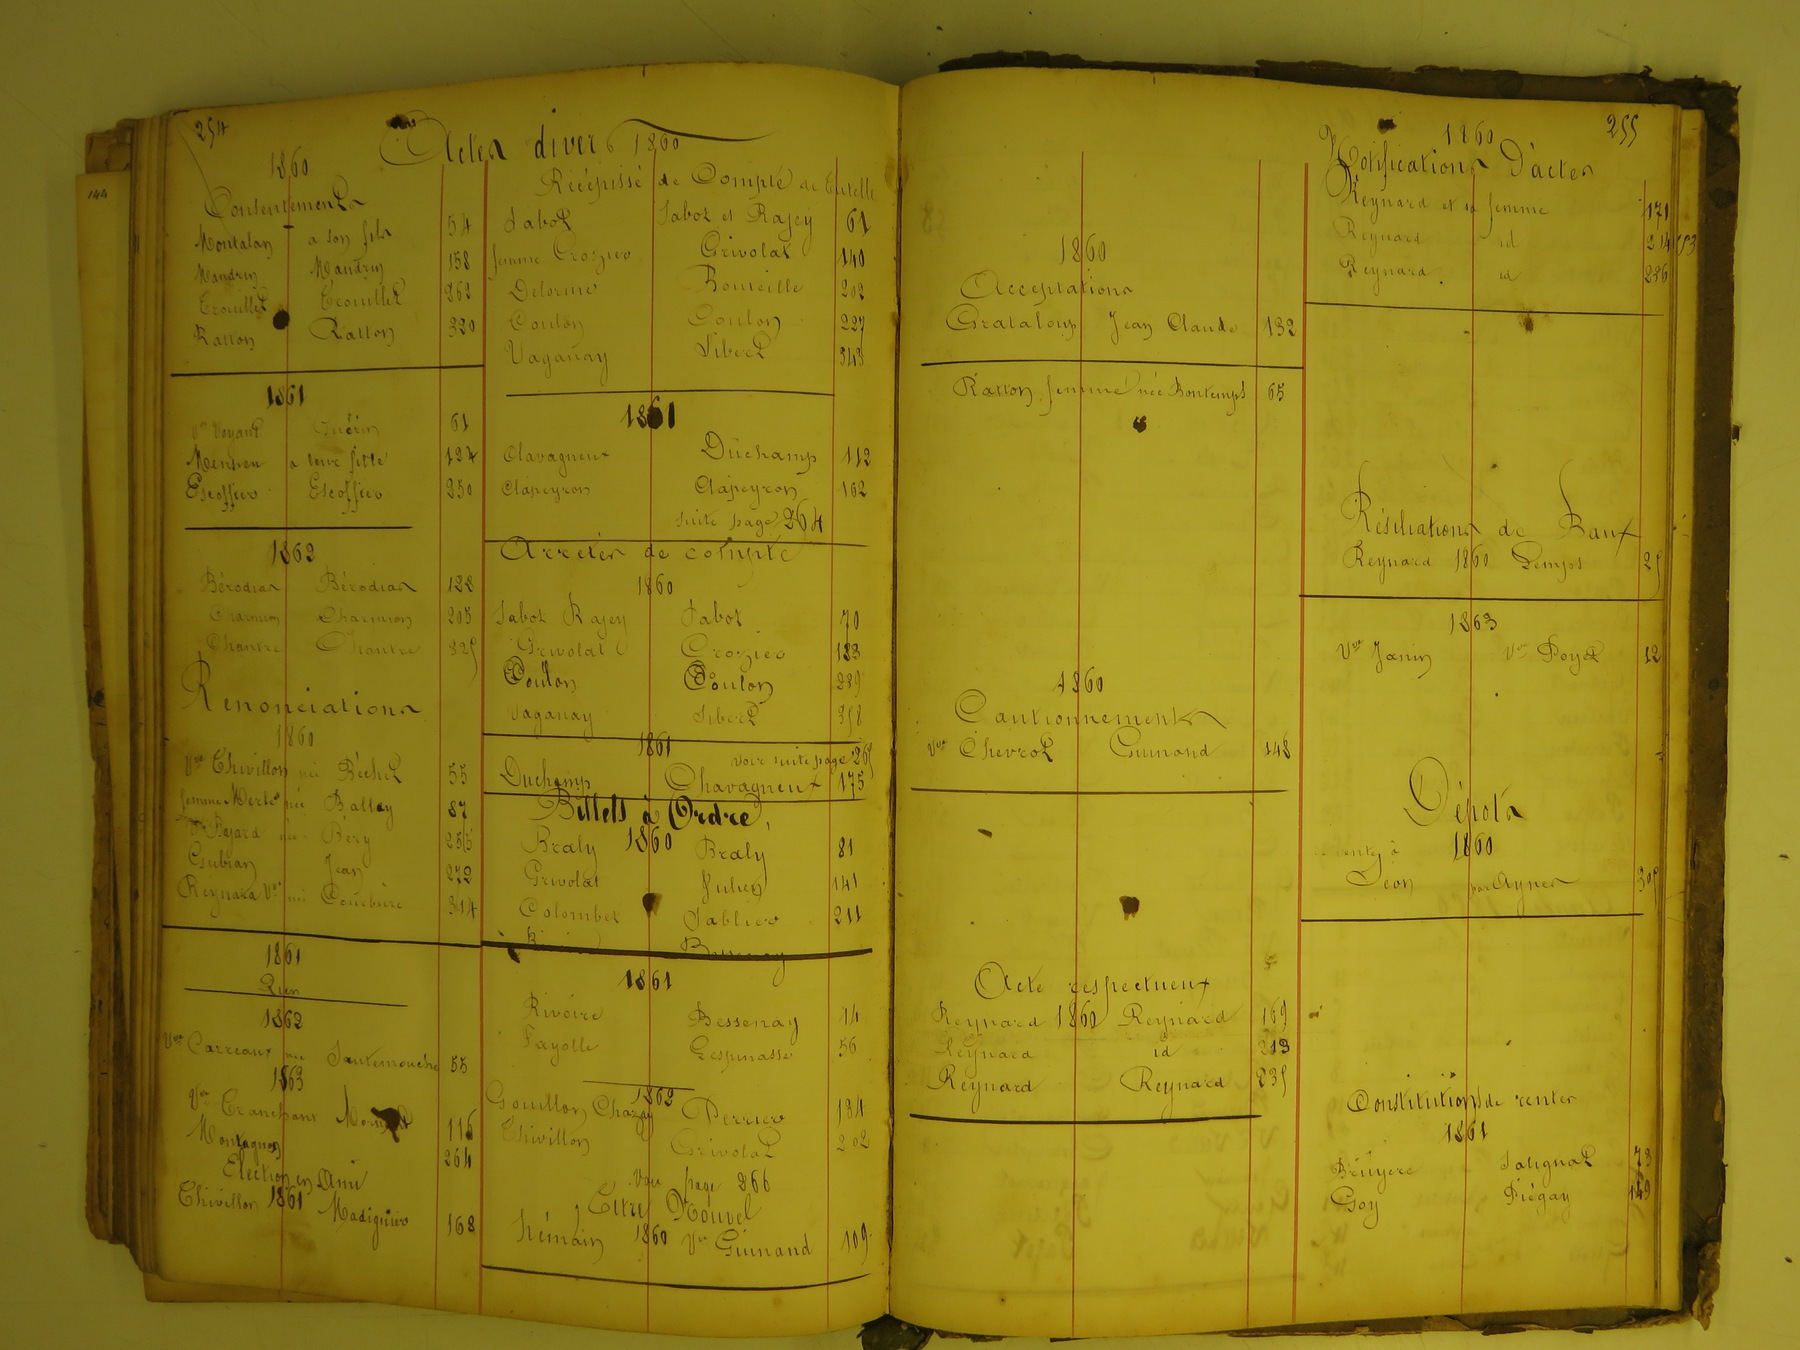 254
Actes divers 1860
1860
Consentements
Montalan à son fils 54
Mandrin Mandrin 158
Trouillet Trouillet 262
Ratton Ratton 320
1861
Vve Voyant Guérin 61
à leur fille 194
Escoffier Escoffier 250
1862
Bérodias Bérodias 128
Charmion Charmion 205
Chantre Chantre 325
Renonciations
1860
Vve Thivillon née Béchet 55
femme Merle née Ballay 87
Vve Bajard née Béry 255
Gubian Jean 272
Reynard Vve née Courbière 314
1861
Rien
1862
Vve Carreaux née Sautemouche 55
1863
Vve Tranchant 116
Montagnon 264
Election en Ami
Thivillon 1861 Madignier 168
Récépissé de Compte de Tutelle
Jabot Jabot et Rajey 61
femme Crozier Grivolat 140
Delorme Bouteille 202
Coulon Coulon 227
Vaganay Sibert 343
1861
Chavagneux Duchamp 112
Clapeyron Clapeyron 162
suite page 264
Arretés de compte
1860
Jabot Rajey Jabot 70
Grivolat Crozier 133
Coulon Coulon 229
Vaganay Sibert 358
1861
voir suite page 265
Duchamp Chavagneux 175
Billets à Ordre
1860
Braly Braly 81
Grivolat Julien 141
Colombet Sablier 211
1861
Rivoire Bessenay 14
Fayolle Lespinasse 56
1862
Gouillon Chazay Perrier 134
Thivillon Grivolat 202
Voir page 266
Titre Nouvel
Hémain 1860 Vve Guinand 109
1860
Acceptations
Grataloup Jean Claude 132
Ratton femme née Bontemps 65
1860
Cautionnements
Vve Chevrot Guinand 148
Acte respectueux
Reynard 1860 Reynard 169
Reynard id 213
Reynard Reynard 235
255
1860
Notifications D'actes
Reynard et sa femme 171
Reynard id 214
Reynard id 236
Résiliations de Baux
Reynard 1860 25
1863
Vve Janin Vve Poyet 12
Dépots
1860
Léon par Aynes 305
Constitutions de rentes
1861
Bruyere Salignat 73
Goy Piégay 149